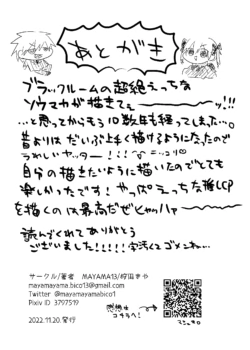 あとがき
ブラックルームの超絶えっちな
ソウマカが描きてぇ〜〜ッ!!!
…と思ってからもう10数年も経ってしまった…。
昔よりはだいぶ上手く描けるようになったので
うれしいヤッター!!! ニッコリ♡
自分の描きたいように描いたのでとても
楽しかったです! やっぱえっちな推しCP
を描くのは最高だぜヒャッハァー
読んでくれてありがとう
ございました!!!!! 字汚くてゴメンネ…
サークル/著者 MAYAMA13/
mayamayama.bico13@gmail.com
Twitter @mayamayamabico1
Pixiv ID 3797519
2022.11.20.発行
感想は
コチラへ!